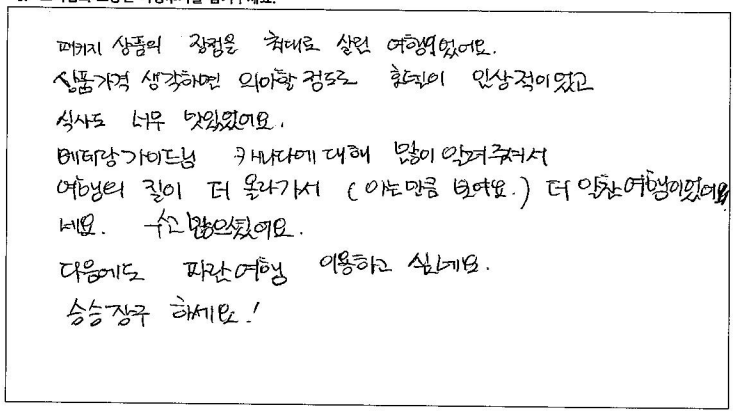 패키지 상품의 장점을 최대로 살린 여행이었어요.
상품가격 생각하면 의아할 정도로 호텔이 인상적이었고
식사도 너무 맛있었어요.
베테랑가이드님 캐나다에 대해 많이 알려주셔서
여행의 질이 더 올라가서 (아는만큼 보여요.) 더 알찬여행이었어요
네요. 수고 많으셨어요.
다음에도 파란여행 이용하고 싶네요.
승승장구 하세요!